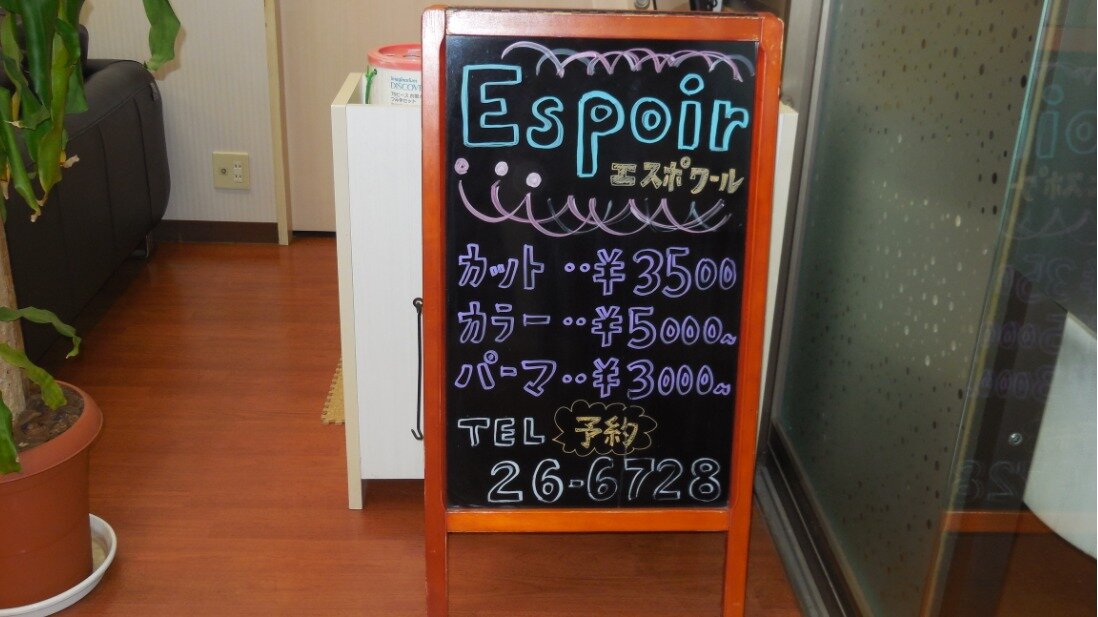 Espoir
エスポワール
カット‥¥3500
カラー‥¥5000~
パーマ‥¥3000~
TEL 予約
26-6728
DISCOVE